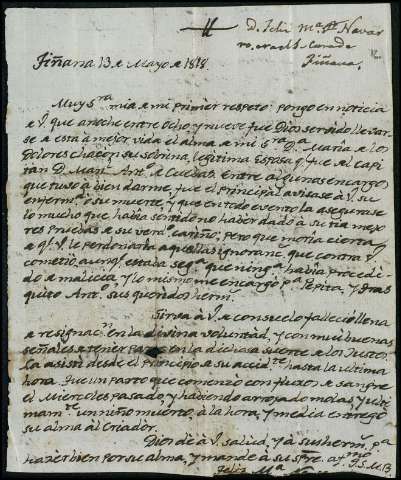 D. Felix Mª Navar
ro, Cura de
Fiñana.
Fiñana 13 de Mayo de 1818
Muy Sra mia de mi primer respeto: pongo en noticia
de V. que anoche entre ocho, y nueve fue Dios servido llevar
se a esta a mejor vida el alma de mi Sra Da Maria de los
Dolores Chacon su sobrina, legitima Esposa q. fue del Capi
tan D. Manl Anto de Cuellas. Entre algunos encargos
que tuvo à bien darme, fue el principal avisase à V. su
enfermd o su muerte, y que en todo evento la asegurase
lo mucho que havia sentido no haber dado à su tia mejo
res pruebas de su verdo cariño; pero que moria cierta
de q. V. le perdonaria aquellas ignoranc. que contra V.
cometió, aunq. estaba sega que ninga habia procedi
do de malicia, y lo mismo me encargó pa Pepita, y Fras
quito Anto sus queridos herm.
Sirva à V. de consuelo falleció llena
de resignacn en la divina voluntad, y con mui buenas
señales de tener parte en la dichosa suerte de los Justos.
La asistí desde el principio de su accidte hasta la ultima
hora. Fue un parto que comenzó con fluxos de sangre
el Miercoles pasado, y habiendo arrojado molas, y ulti
mamte un niño muerto, à la hora, y media entregó
su alma al Criador.
Dios dé à V. salud, y à sus herm. pa
hazer bien por su alma, y mande à su
Q. S. M. B.
Felix Ma